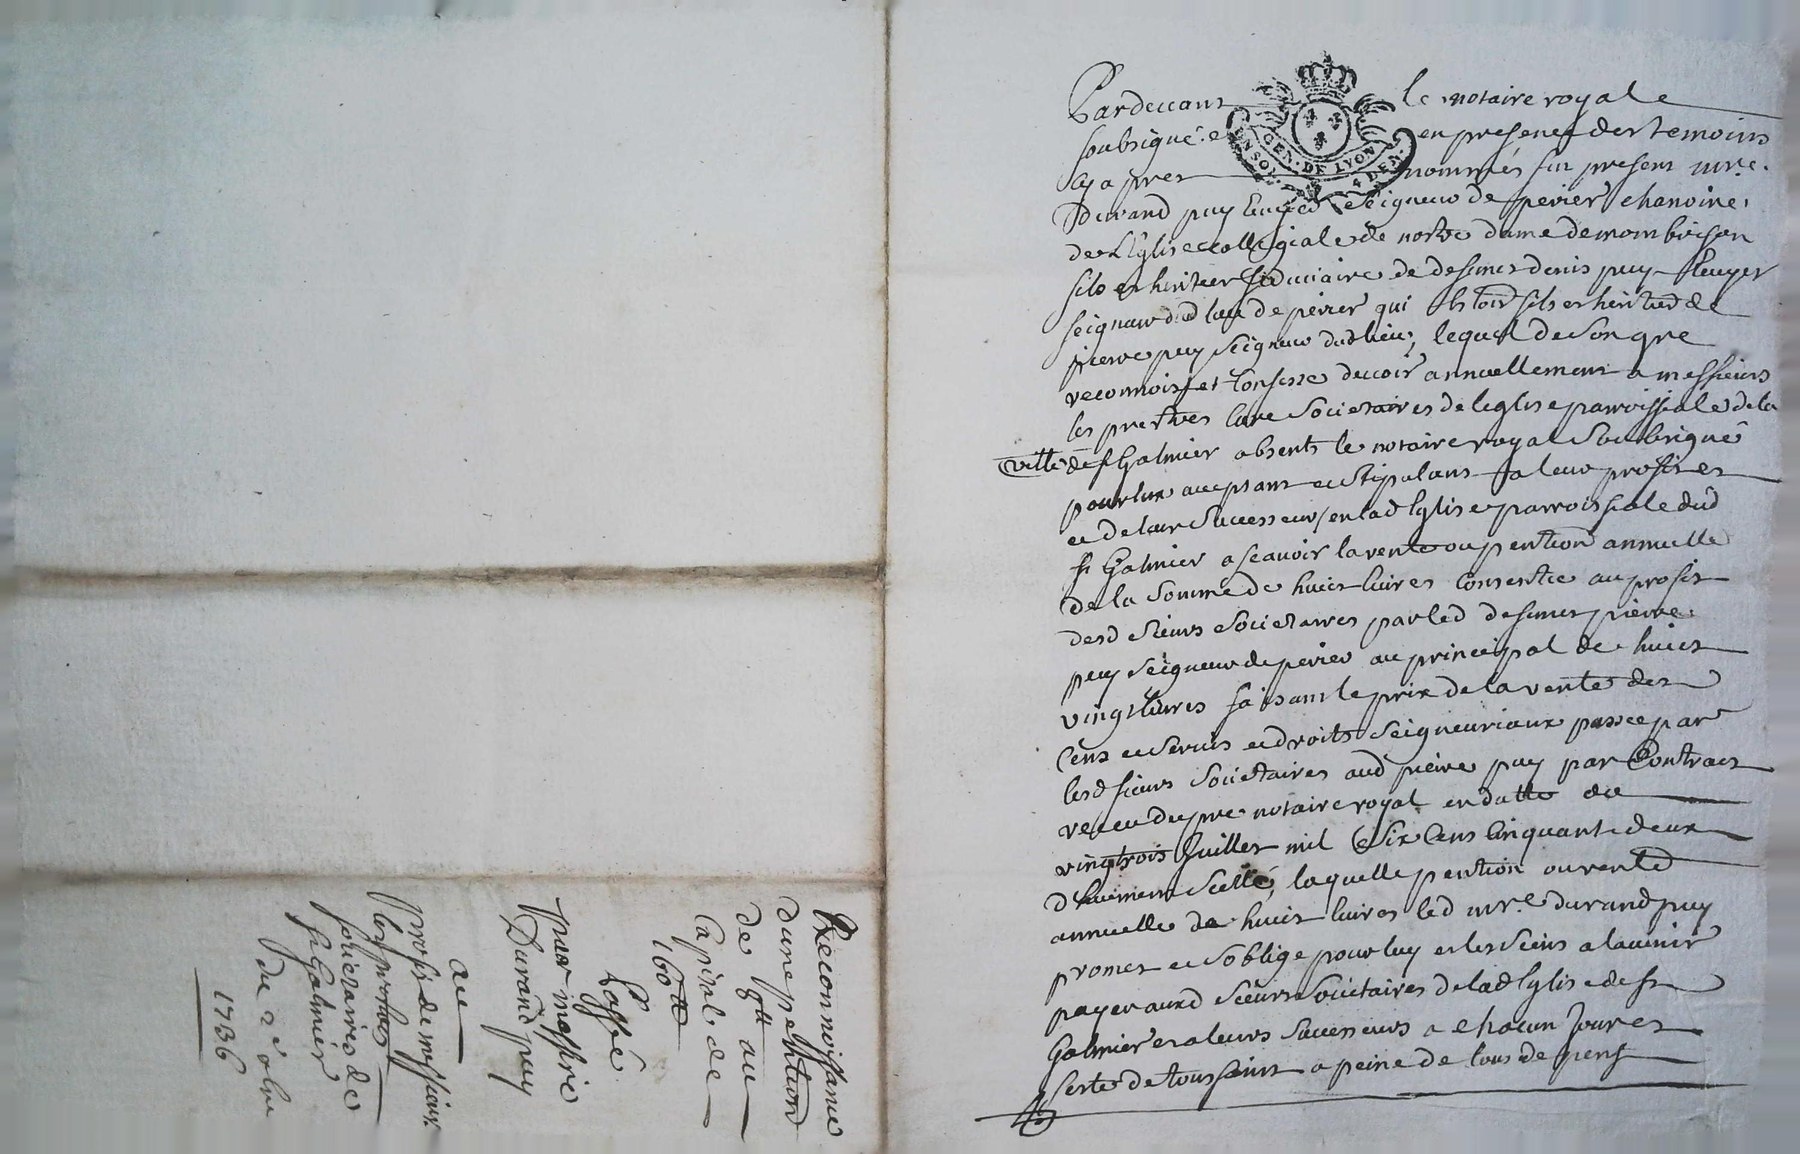 Pardevant le notaire royal
soubsigné et en presence des temoins
cy apres nommés fut present mre.
durand puy Seigneur de perier chanoine
de L'Eglise collegiale de notre dame de mombrison
fils et heritier fiduciaire de defunct denis puy
seigneur dud lieu de perier qui Etoit fils et heritier de
pierre puy seigneur dud lieu, lequel de son gre
reconnoist et Confesse devoir annuellement a messieurs
les prestres Cure Societaires de leglise parroissiale de la
ville de st Galmier absents le notaire royal Soubsigné
pour eux acceptant et stipulant a leur profit et
et de leur Successeurs en lad Eglise parroissiale dud
st Galmier a scavoir la rente ou pention annuelle
de la Somme de huict livres Consentie au profit
desd Sieurs Societaires par led defunct pierre
puy Seigneur de perier au principal de huict
vingt livres faisant le prix de la vente des
Cens et Servis et droits Seigneuriaux passée par
lesd sieurs Societaires aud pierre puy par Contract
receu dupre notaire royal en datte du
vingtrois Juillet mil Six Cens Cinquante deux
d'huement Scellé, laquelle pention ou rente
annuelle de huict livres led mre. durand puy
promet et s'oblige pour luy et les Siens a l'avenir
payer auxd Sieurs Societaires de lad Eglise de st
Galmier et a leurs Successeurs a chacun Jour et
feste de toussaint a peine de tous depens
GEN. DE LYON
4 DEN.
Reconnoissance
dune penttion
de 8tt au
Capital de
160tt
Passé
par messire
Durand puy
au
profit de messieurs
les prestres
societaires de
st Galmier
du 2e 8bre
1736